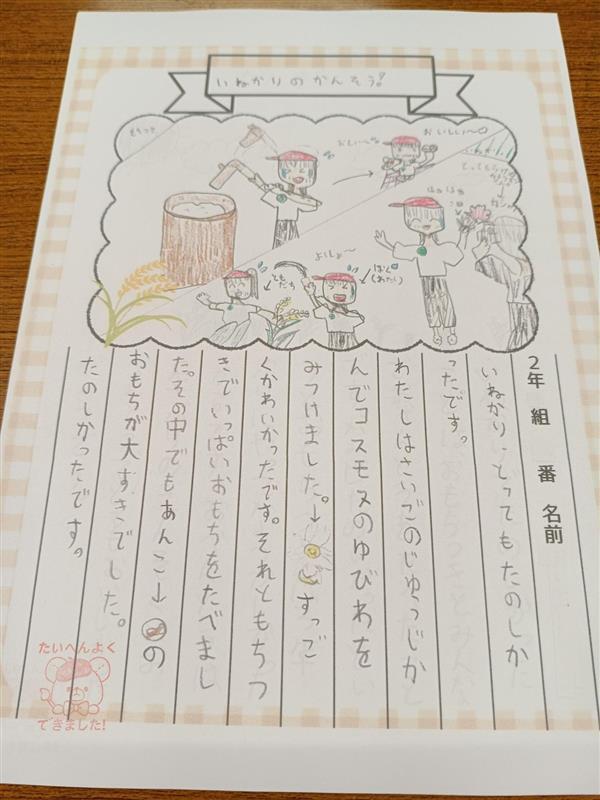 いねかりのかんそう!
もちつき
おもい〜
おいしい〜
とってもらった
はぁはぁ
よいしょ〜
ともだち
ぼく
(わたし)
2年 組 番 名前
いねかり、とってもたのしか
ったです。
わたしはさいごのじゆうじか
んでコスモスのゆびわを
みつけました。↓すっご
くかわいかったです。それともちつ
きでいっぱいおもちをたべまし
た。その中でもあんこ↓の
おもちが大すきでした。
たのしかったです。
たいへんよく
できました!